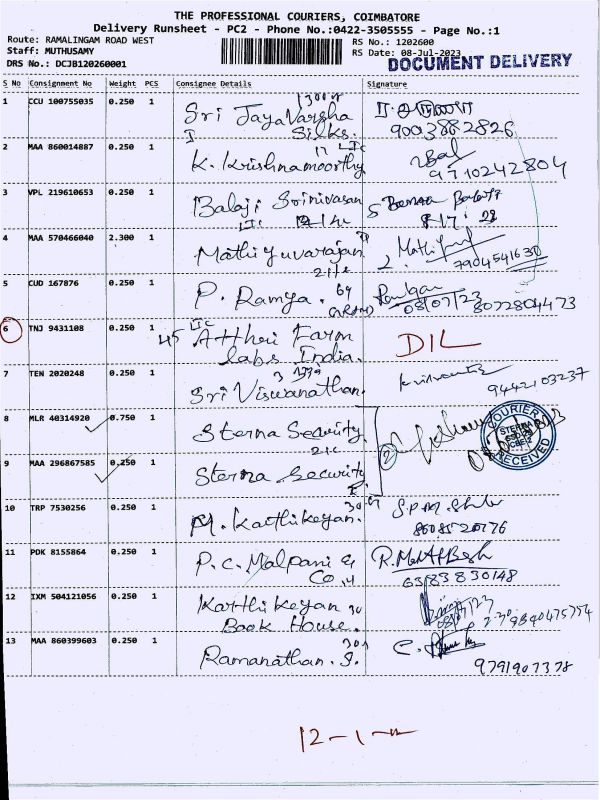 THE PROFESSIONAL COURIERS, COIMBATORE
Delivery Runsheet - PC2 - Phone No.:0422-3505555 - Page No.:1
Route: RAMALINGAM ROAD WEST
RS No.: 1202600
Staff: MUTHUSAMY
RS Date: 08-Jul-2023
DRS No.: DCJB120260001
DOCUMENT DELIVERY
S No Consignment No Weight PCS Consignee Details Signature
1 CCU 100755035 0.250 1 Sri JayaVarsha Silks.
9003882826
2 MAA 860014887 0.250 1 K. Krishnamoorthy
9710242804
3 VPL 219610653 0.250 1 Balaji Srinivasan
4 MAA 570466040 2.300 1 Mathiyuvarajan
7904541630
5 CUD 167876 0.250 1 P. Ramya.
08/07/23 8072804473
6 TNJ 9431108 0.250 1 Atthri Farm labs India.
DIL
7 TEN 2020248 0.250 1 Sri Viswanathan.
9442103237
8 MLR 40314920 0.750 1 Sterna Security.
2
COURIER
STERNA
RECEIVED
9 MAA 296867585 0.250 1 Sterna Security
10 TRP 7530256 1 0.250 M. Karthikeyan.
11 PDK 8155864 0.250 1 P.C. Malpani & Co.
6383830148
12 IXM 504121056 0.250 1 Karthikeyan Book House.
9840475754
13 MAA 860399603 0.250 1 Ramanathan. S.
9791907378
12-1-